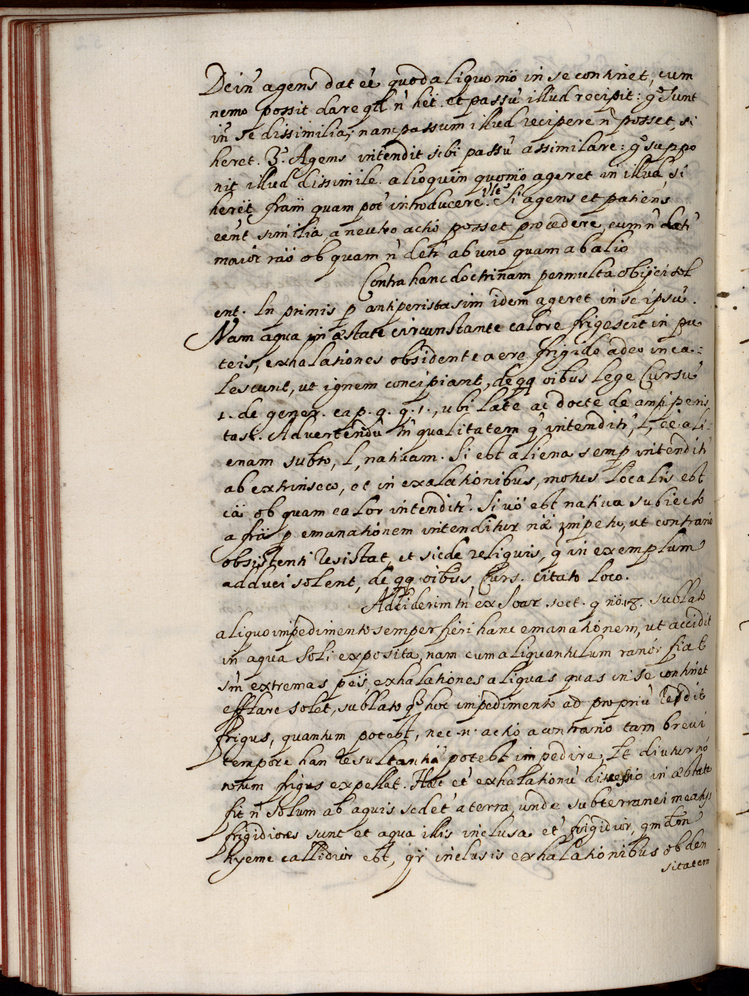 Dein agens dat eē quodaliquo mō in se continet, cum
nemo possit dare qđ n̄ hēt. et passū illud recipit: gͦ sunt
in se dissimilia; nam passum illud recipere n̄ posset, si
heret. 3ͦ. Agens intendit sibi passū assimilare: gͦ suppo
nit illud dissimile. alioquin quomō ageret in illud si
herēt frām quam pot̄ introducere. Si agens et patiens
eēnt similia a neutro actio posset procedere, cum n̄ det̄r
maior rāo ob quam n̄ det̄r ab uno quam ab alio
Contra hanc doctrinam permulta obijci sol
ent. In primis p antiperistasim idem ageret in se ipsū.
Nam aqua in æstate circunstante calore frigescit in pu
teis, exhalationes obsidente aere frigido adeo inca-
lescunt, ut ignem concipiant, de qq oībus lege Cursū
1. de gener. cap. 9. q. 1., ubi late ac docte de antiperis
tasi. Advertendū tn̄ qualitatem q̄ intendit̄r, l, eē ali
enam subto, l, nativam. Si est aliena semp intendit̄r
ab extrinseco, ut in exalationibus, motus localis est
cā ob quam calor intendit̄r. Si vō est nativa subiecto
a frā p emanationem intenditur nāe impetu, ut contrario
obsistenti resistat, et sic de reliquis, q̄ in exemplum
adduci solent, de qq oībus Curs. citato loco.
Addiderim tn̄ ex Soar. sect. 9 nō. 18. sublato
aliquo impedimento semper fieri hanc emanationem, ut accidit
in aqua soli exposita, nam cum aliquantulum rarior fiat
in extremas ptes exhalationes aliquas quas in se continet
efflare solet, sublato gͦ hoc impedimento ad propriū redit
frigus, quantum potest, nec n̄ actio a contrario tam brevi
tempore han resultantiā potest impedire, et diuturno
totum frigus expellat. Hæc et̄ exhalationū in æstate
fit n̄ solum ab aquis sed et̄ a terra, unde subterranei meatus
frigidiores sunt et aqua illis inclusa et̄ frigidior, qm̄
hyeme callidior est, q̄a inclusis exhalationibus ob den
sitatem